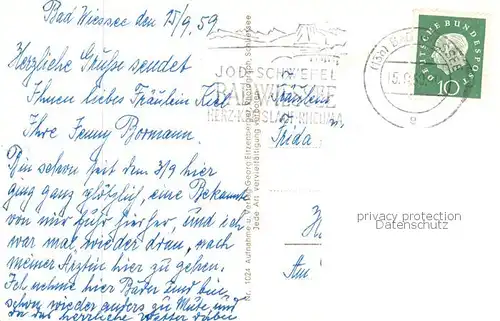 Bad Wiessee den 15/9. 59
Herzliche Grüße sendet
Ihnen liebes Fräulein
Ihre Fenny Bormann.
Bin schon seit dem 3/9 hier
ging ganz plötzlich, eine Bekannte
von mir fuhr hierher, und ich
war mal wieder dran, nach
meiner Ärztin hier zu gehen.
Ich nehme hier Bäder und bin
schon wieder anders zu Mute, und
da das herrliche Wetter dabei
Nr. 1024 Aufnahme u. Verlag Georg Ettzenberger, Fotograph, Schliersee
Jede Art Vervielfältigung verboten
JOD-SCHWEFEL
BAD WIESSEE
HERZ-KREISLAUF-RHEUMA
(13b) BAD WIESSEE
15.9.59
e
DEUTSCHE BUNDESPOST
10
Fräulein
Frida
Am
privacy protection
Datenschutz